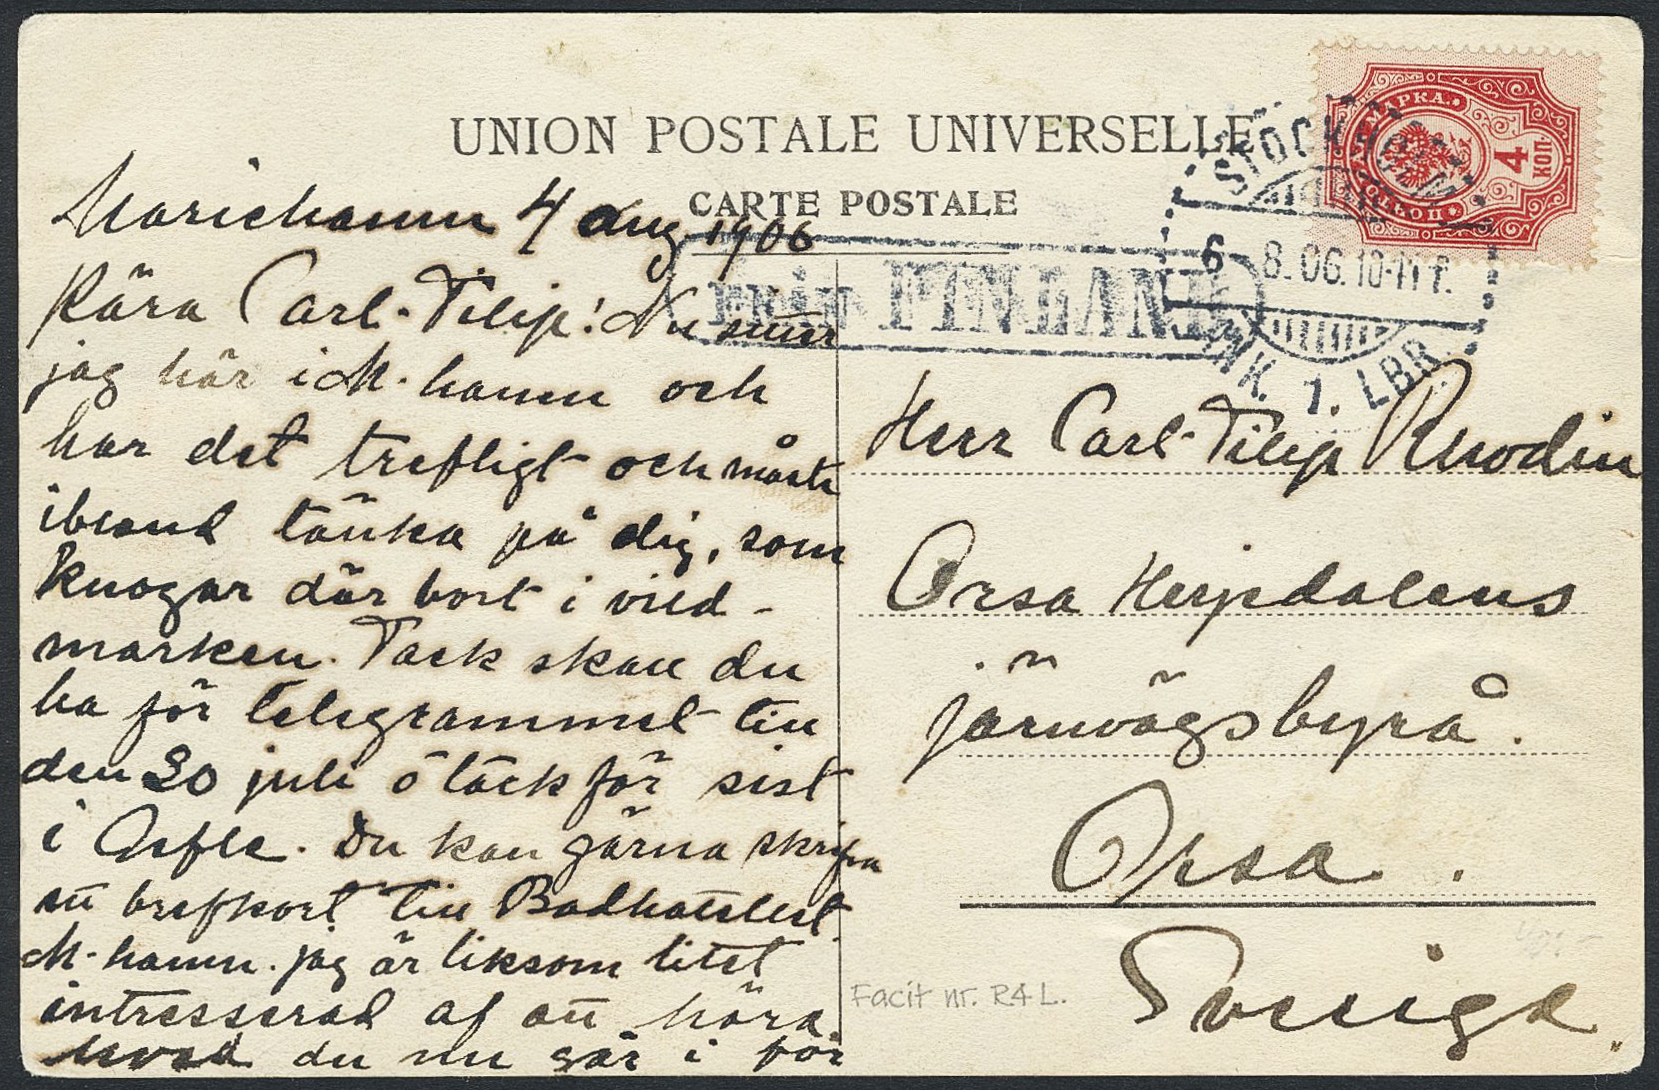 UNION POSTALE UNIVERSELLE
CARTE POSTALE
Mariehamn 4 Aug. 1906
Kära Carl-Filip! Nu sitter
jag här i M-hamn och
har det trefligt och måste
ibland tänka på dig, som
knogar där bort i vild-
marken. Tack skall du
ha för telegrammet till
den 30 juli o täck för sist
i Gefle. Du kan gärna skrifva
ett brefkort till Badhotellet
M-hamn. jag är liksom litet
intresserad af att höra
hvad du nu går i för
ПОЧТОВАЯ МАРКА.
4
КОП.
STOCKHOLM
6 8.06.10-11 f.
ANK. 1. LBR.
FRÅN FINLAND
Herr Carl-Filip Rhodin
Orsa Herjedalens
järnvägsbyrå.
Orsa.
Sverige
Facit nr. R4 L.